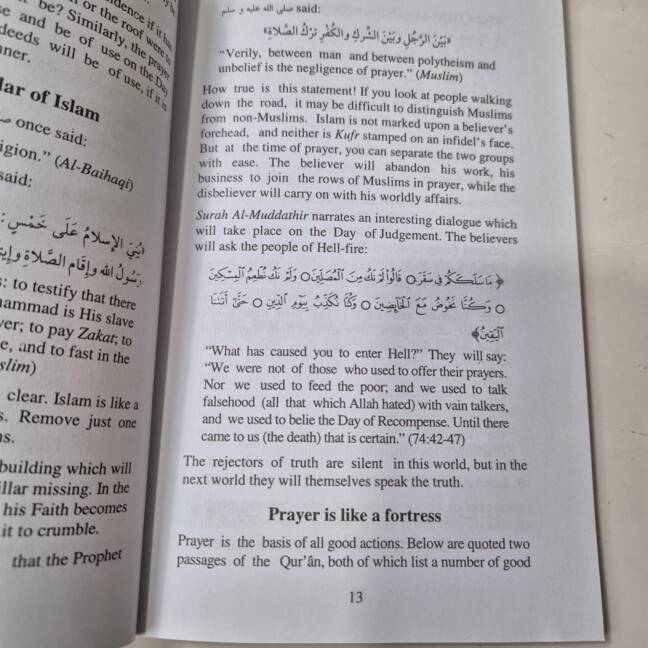 idence if it has
or the roof were to
be? Similarly, the prayer
e and be of use on the Day
deeds will be of use, if it is
nner.
lar of Islam
once said:
igion." (Al-Baihaqi)
said:
بُنِيَ الإِسلامُ عَلَى خَمْسٍ :
رَسُولُ الله وإقَام الصَّلاة وإيتَ
s: to testify that there
hammad is His slave
yer; to pay Zakat; to
e, and to fast in the
slim)
clear. Islam is like a
s. Remove just one
ns.
building which will
illar missing. In the
his Faith becomes
it to crumble.
that the Prophet
صلى الله عليه و سلم said:
«بَيْنَ الرَّجُلِ وبَيْنَ الشِّركِ والكُفْرِ تَرْكُ الصَّلاةِ»
"Verily, between man and between polytheism and
unbelief is the negligence of prayer." (Muslim)
How true is this statement! If you look at people walking
down the road, it may be difficult to distinguish Muslims
from non-Muslims. Islam is not marked upon a believer's
forehead, and neither is Kufr stamped on an infidel's face.
But at the time of prayer, you can separate the two groups
with ease. The believer will abandon his work, his
business to join the rows of Muslims in prayer, while the
disbeliever will carry on with his worldly affairs.
Surah Al-Muddathir narrates an interesting dialogue which
will take place on the Day of Judgement. The believers
will ask the people of Hell-fire:
﴿ مَا سَلَكَكُمْ فِي سَقَرَ ○ قَالُوا لَمْ نَكُ مِنَ الْمُصَلِّينَ ○ وَلَمْ نَكُ نُطْعِمُ الْمِسْكِينَ
○ وَكُنَّا نَخُوضُ مَعَ الْخَائِضِينَ ○ وَكُنَّا نُكَذِّبُ بِيَوْمِ الدِّينِ ○ حَتَّى أَتَانَا
الْيَقِينُ﴾
"What has caused you to enter Hell?" They will say:
"We were not of those who used to offer their prayers.
Nor we used to feed the poor; and we used to talk
falsehood (all that which Allah hated) with vain talkers,
and we used to belie the Day of Recompense. Until there
came to us (the death) that is certain." (74:42-47)
The rejectors of truth are silent in this world, but in the
next world they will themselves speak the truth.
Prayer is like a fortress
Prayer is the basis of all good actions. Below are quoted two
passages of the Qur'ân, both of which list a number of good
13